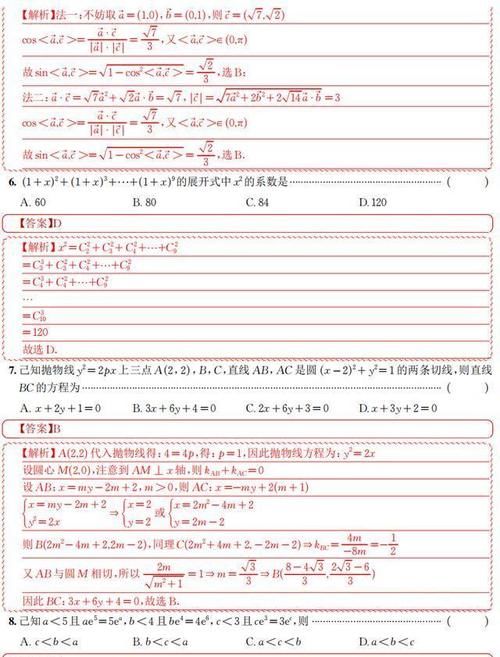 【解析】法一:不妨取 a⃗=(1.0), b⃗=(0.1),则 c⃗=(√7.√2)
cos<a⃗.c⃗>=a⃗·c⃗/|a⃗|·|c⃗|=√7/3,又<a⃗.c⃗>∈(0.π)
故 sin<a⃗.c⃗>=√(1-cos²<a⃗.c⃗>)=√2/3,选B;
法二:a⃗·c⃗=√7a⃗²+√2a⃗·b⃗=√7, |c⃗|=√(7a⃗²+2b⃗²+2√14a⃗·b⃗)=3
cos<a⃗.c⃗>=a⃗·c⃗/|a⃗|·|c⃗|=√7/3,又<a⃗.c⃗>∈(0.π)
故 sin<a⃗.c⃗>=√(1-cos²<a⃗.c⃗>)=√2/3,选B.
6. (1+x)²+(1+x)³+…+(1+x)⁹的展开式中x²的系数是………( )
A. 60 B. 80 C. 84 D. 120
【答案】D
【解析】x²=C₂²+C₃²+C₄²+…+C₉²
=C₃³+C₃²+C₄²+…+C₉²
=C₄³+C₄²+…+C₉²
…
=C₁₀³
=120
故选D.
7. 己知抛物线y²=2px上三点A(2,2),B,C,直线AB,AC是圆(x-2)²+y²=1的两条切线,则直线
BC的方程为………( )
A. x+2y+1=0 B. 3x+6y+4=0 C. 2x+6y+3=0 D. x+3y+2=0
【答案】B
【解析】A(2.2)代入抛物线得:4=4p,得:p=1,因此抛物线方程为:y²=2x
设圆心M(2,0),注意到AM⊥x轴,则k_AB+k_AC=0
设AB:x=my-2m+2,m>0,则AC:x=-my+2(m+1)
{x=my-2m+2 y²=2x ⇒ {x=2 y=2 或 {x=2m²-4m+2 y=2m-2
则B(2m²-4m+2.2m-2),同理C(2m²+4m+2.-2m-2)⇒k_BC=4m/-8m=-1/2
又AB与圆M相切,所以2m/√(m²+1)=1⇒m=√3/3⇒B(8-4√3/3,2√3-6/3)
因此BC:3x+6y+4=0,故选B.
8. 己知a<5且ae⁵=5eᵃ,b<4且be⁴=4eᵇ,c<3且ce³=3eᶜ,则………( )
A. c<b<a B. b<c<a C. a<c<b D. a<b<c